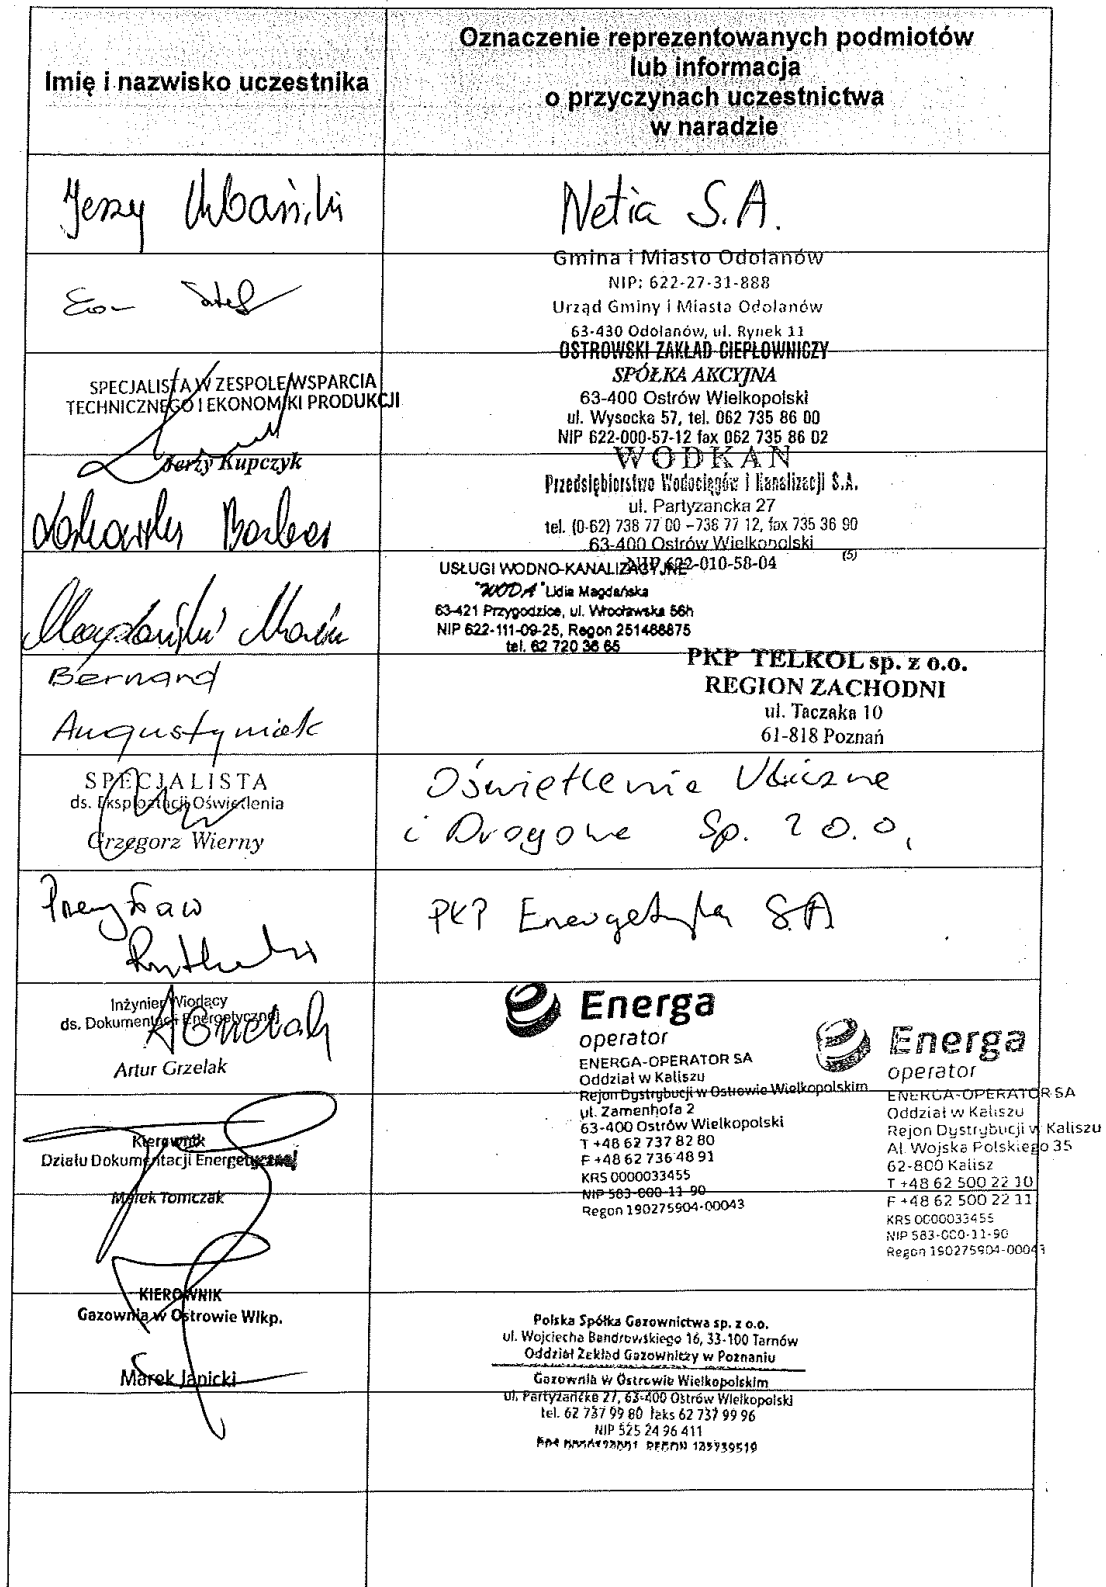 Imię i nazwisko uczestnika
Oznaczenie reprezentowanych podmiotów
lub informacja
o przyczynach uczestnictwa
w naradzie
Jerzy Urbański
Netia S.A.
Gmina i Miasto Odolanów
NIP: 622-27-31-888
Urząd Gminy i Miasta Odolanów
63-430 Odolanów, ul. Rynek 11
SPECJALISTA W ZESPOLE WSPARCIA
TECHNICZNEGO I EKONOMIKI PRODUKCJI
Jerzy Kupczyk
OSTROWSKI ZAKŁAD CIEPŁOWNICZY
SPÓŁKA AKCYJNA
63-400 Ostrów Wielkopolski
ul. Wysocka 57, tel. 062 735 86 00
NIP 622-000-57-12 fax 062 735 86 02
WODKAN
Przedsiębiorstwo Wodociągów i Kanalizacji S.A.
ul. Partyzancka 27
tel. (0-62) 738 77 00 – 738 77 12, fax 735 36 90
63-400 Ostrów Wielkopolski
NIP 622-010-58-04 (5)
USŁUGI WODNO-KANALIZACYJNE
"WODA" Lidia Magdańska
63-421 Przygodzice, ul. Wrocławska 56h
NIP 622-111-09-25, Regon 251486875
tel. 62 720 36 65
Bernard
Augustyniak
PKP TELKOL sp. z o.o.
REGION ZACHODNI
ul. Taczaka 10
61-818 Poznań
SPECJALISTA
ds. Eksploatacji Oświetlenia
Grzegorz Wierny
Oświetlenie Uliczne
i Drogowe Sp. z o.o.
Przemysław
PKP Energetyka S.A
Inżynier Wiodący
ds. Dokumentacji Energetycznej
Artur Grzelak
Energa
operator
ENERGA-OPERATOR SA
Oddział w Kaliszu
Rejon Dystrybucji w Ostrowie Wielkopolskim
ul. Zamenhofa 2
63-400 Ostrów Wielkopolski
T +48 62 737 82 80
F +48 62 736 48 91
KRS 0000033455
NIP 583-000-11-90
Regon 190275904-00043
Energa
operator
ENERGA-OPERATOR SA
Oddział w Kaliszu
Rejon Dystrybucji w Kaliszu
Al. Wojska Polskiego 35
62-800 Kalisz
T +48 62 500 22 10
F +48 62 500 22 11
KRS 0000033455
NIP 583-000-11-90
Regon 190275904-00043
Kierownik
Działu Dokumentacji Energetycznej
Marek Tomczak
KIEROWNIK
Gazownia w Ostrowie Wlkp.
Marek Janicki
Polska Spółka Gazownictwa sp. z o.o.
ul. Wojciecha Bandrowskiego 16, 33-100 Tarnów
Oddział Zakład Gazowniczy w Poznaniu
Gazownia w Ostrowie Wielkopolskim
ul. Partyzancka 27, 63-400 Ostrów Wielkopolski
tel. 62 737 99 80 faks 62 737 99 96
NIP 525 24 96 411